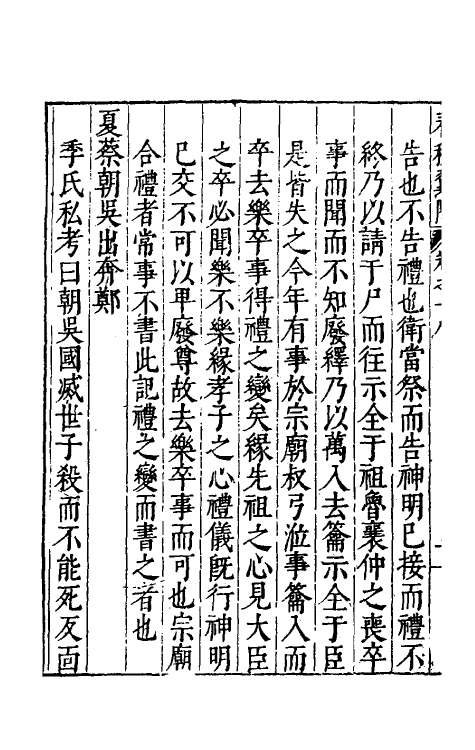 告也不告禮也衛當祭而告神明已接而禮不
終乃以請于尸而往示全于祖魯襄仲之喪卒
事而聞而不知廢繹乃以萬入去籥示全于臣
是皆失之今年有事於宗廟叔弓涖事籥入而
卒去樂卒事得禮之變矣緣先祖之心見大臣
之卒必聞樂不樂緣孝子之心禮儀旣行神明
已交不可以卑廢尊故去樂卒事而可也宗廟
合禮者常事不書此記禮之變而書之者也
夏蔡朝吳出奔鄭
季氏私考曰朝吳國滅世子殺而不能死反靣